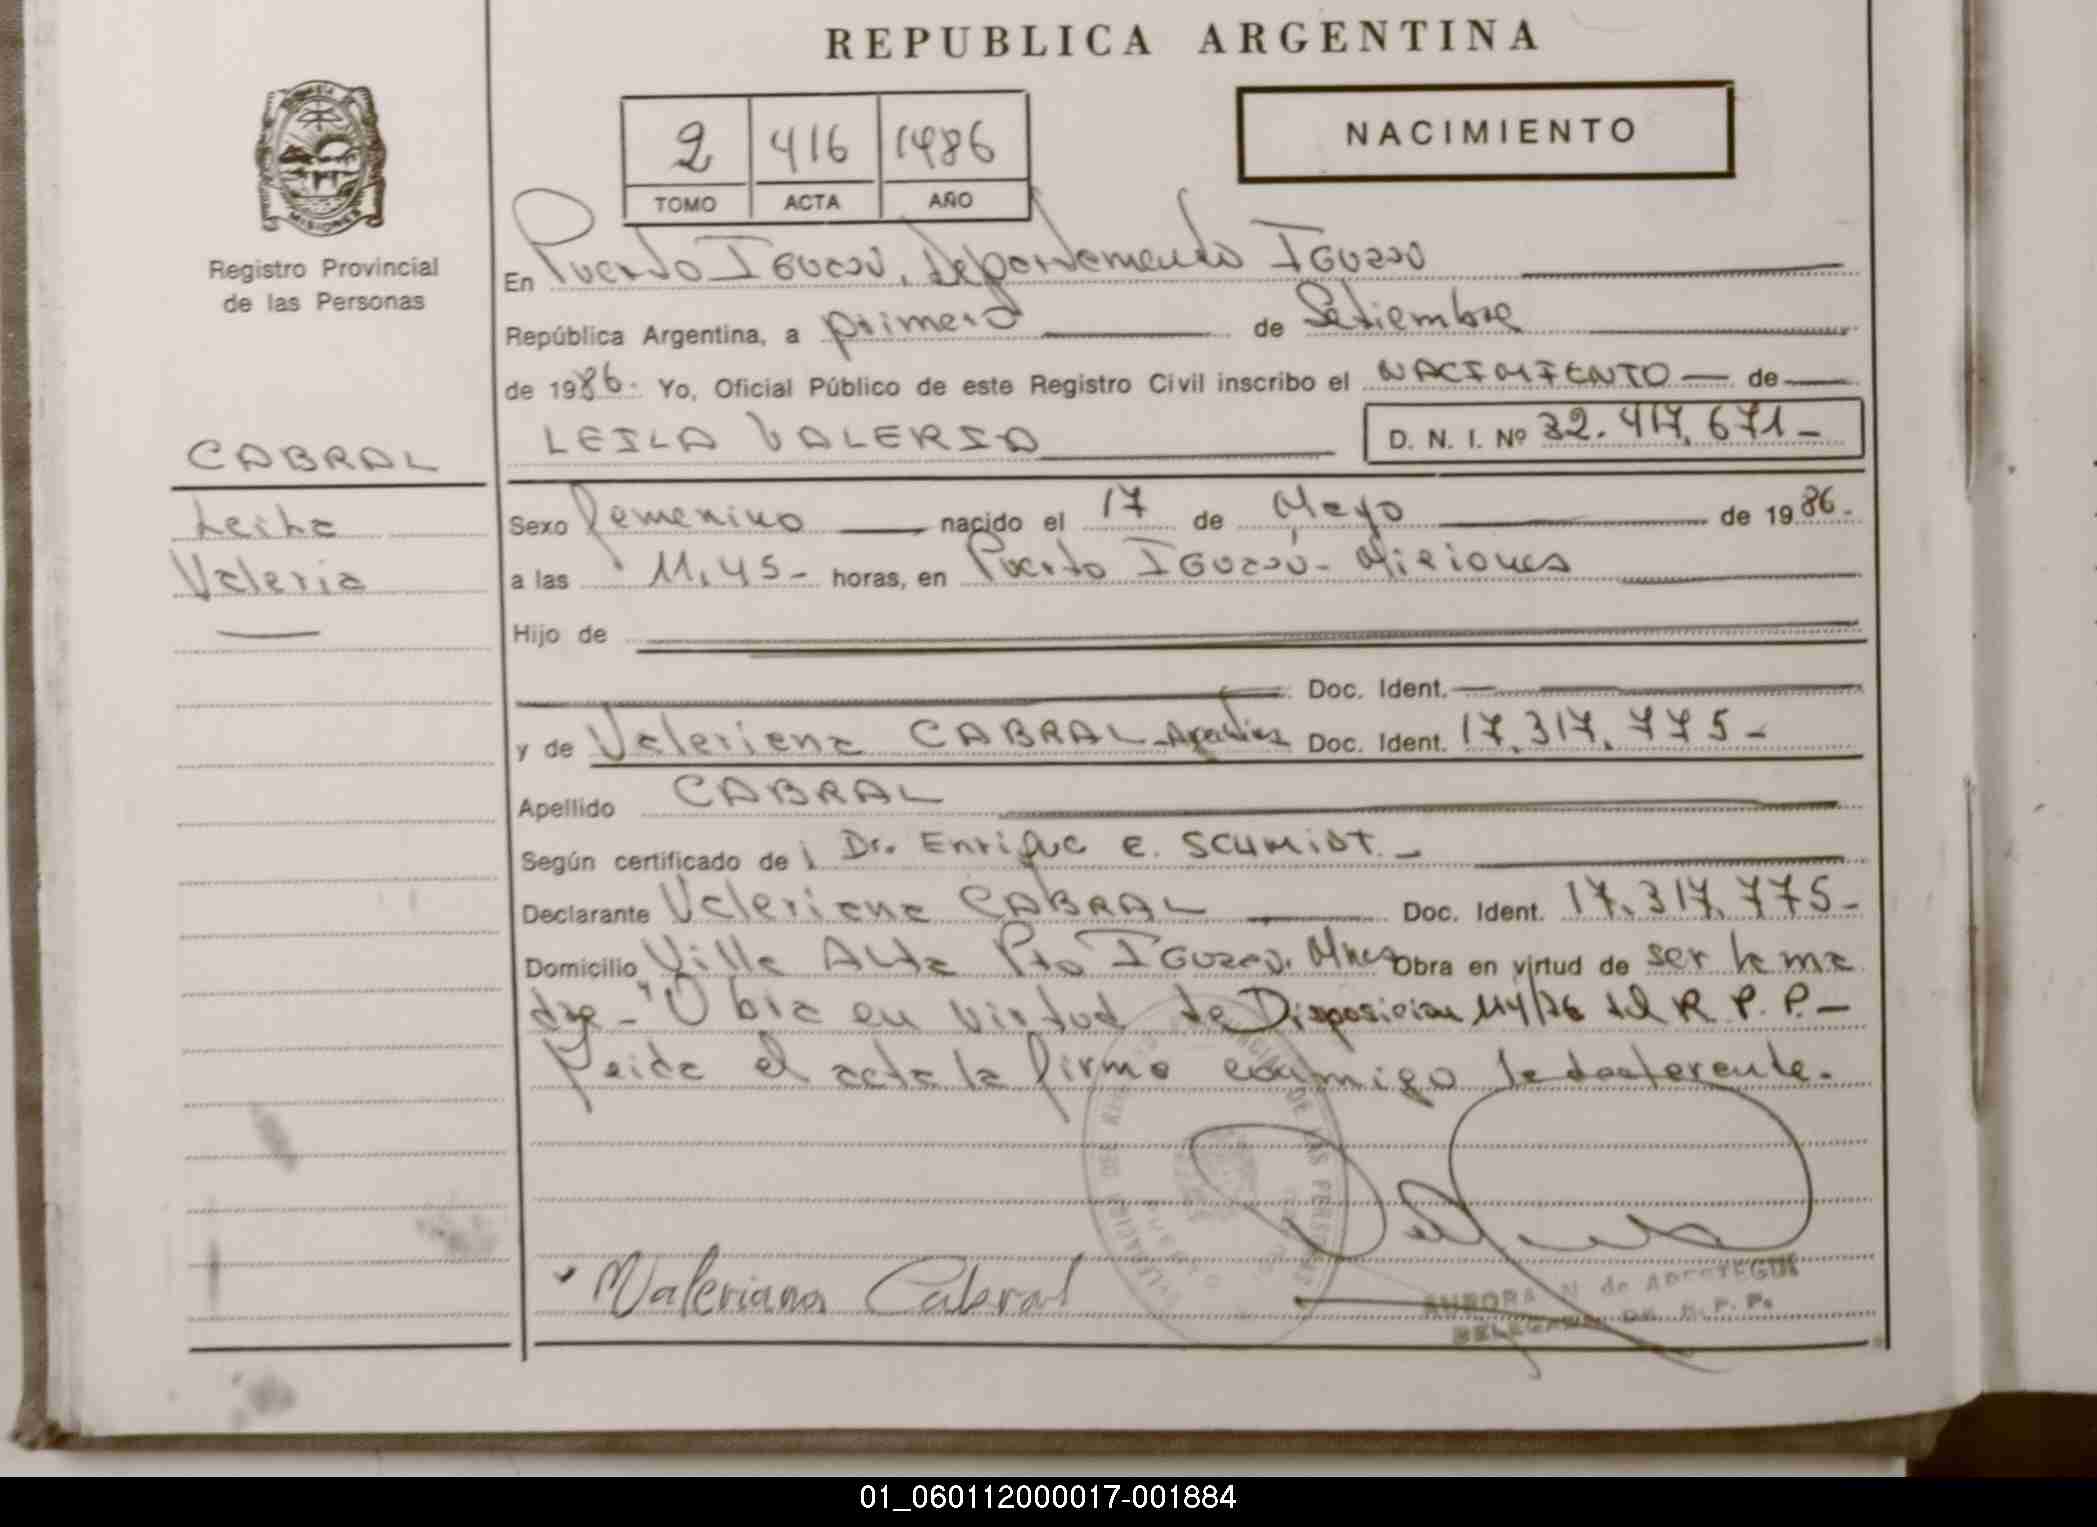 REPUBLICA ARGENTINA
MISIONES
Registro Provincial
de las Personas
2 416 1986
TOMO ACTA AÑO
NACIMIENTO
En Puerto Iguazú, departamento Iguazú
República Argentina, a primero de Setiembre
de 1986. Yo, Oficial Público de este Registro Civil inscribo el NACIMIENTO de
LEILA VALERIA D. N. I. Nº 32.417.671-
CABRAL
Leila
Valeria
Sexo femenino nacido el 17 de Mayo de 1986.
a las 11,45- horas, en Puerto Iguazú- Misiones
Hijo de
Doc. Ident.
y de Valeriana CABRAL-Argentina Doc. Ident. 17.317.775-
Apellido CABRAL
Según certificado de Dr. Enrique E. SCHMIDT.-
Declarante Valeriana CABRAL Doc. Ident. 17.317.775-
Domicilio Villa Alta Pto Iguazú. Mnes Obra en virtud de ser la ma
dre-"Obra en virtud de Disposicion 114/76 del R. P. P.-
Leida el acta la firma conmigo la declarente.
Valeriana Cabral
AURORA N de APESTEGUI
DELEGADA DE R. P. P.
01_060112000017-001884